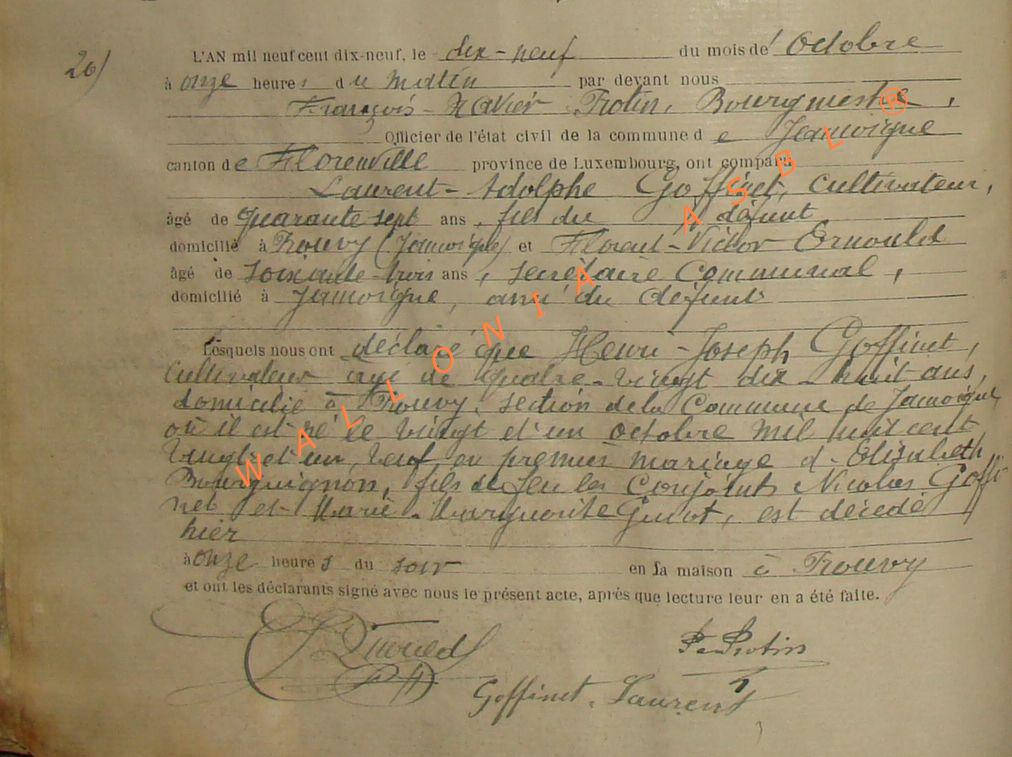 20)
L'AN mil neuf cent dix-neuf, le dix-neuf du mois de Octobre
à onze heures du matin par devant nous
François-Xavier Protin, Bourgmestre,
Officier de l'état civil de la commune de Jamoigne
canton de Florenville province de Luxembourg, ont comparu
Laurent-Adolphe Goffinet, Cultivateur,
âgé de quarante sept ans, fils du défunt
domicilié à Prouvy (Jamoigne) et Florent-Victor
âgé de soixante-trois ans, secrétaire Communal,
domicilié à Jamoigne, ami du défunt
Lesquels nous ont déclaré que Henri-Joseph Goffinet,
Cultivateur âgé de quatre-vingt dix-huit ans,
domicilié à Prouvy, section de la Commune de Jamoigne,
où il est né le vingt et un octobre mil huit cent
vingt et un, veuf en premier mariage d'Elisabeth
Bourguignon, fils de feu les Conjoints Nicolas Goffi
net et Marie-Marguerite, est décédé
hier
à onze heures du soir en sa maison à Prouvy
et ont les déclarants signé avec nous le présent acte, après que lecture leur en a été faite.
Protin
Goffinet Laurent
WALLONIA ASBL ®